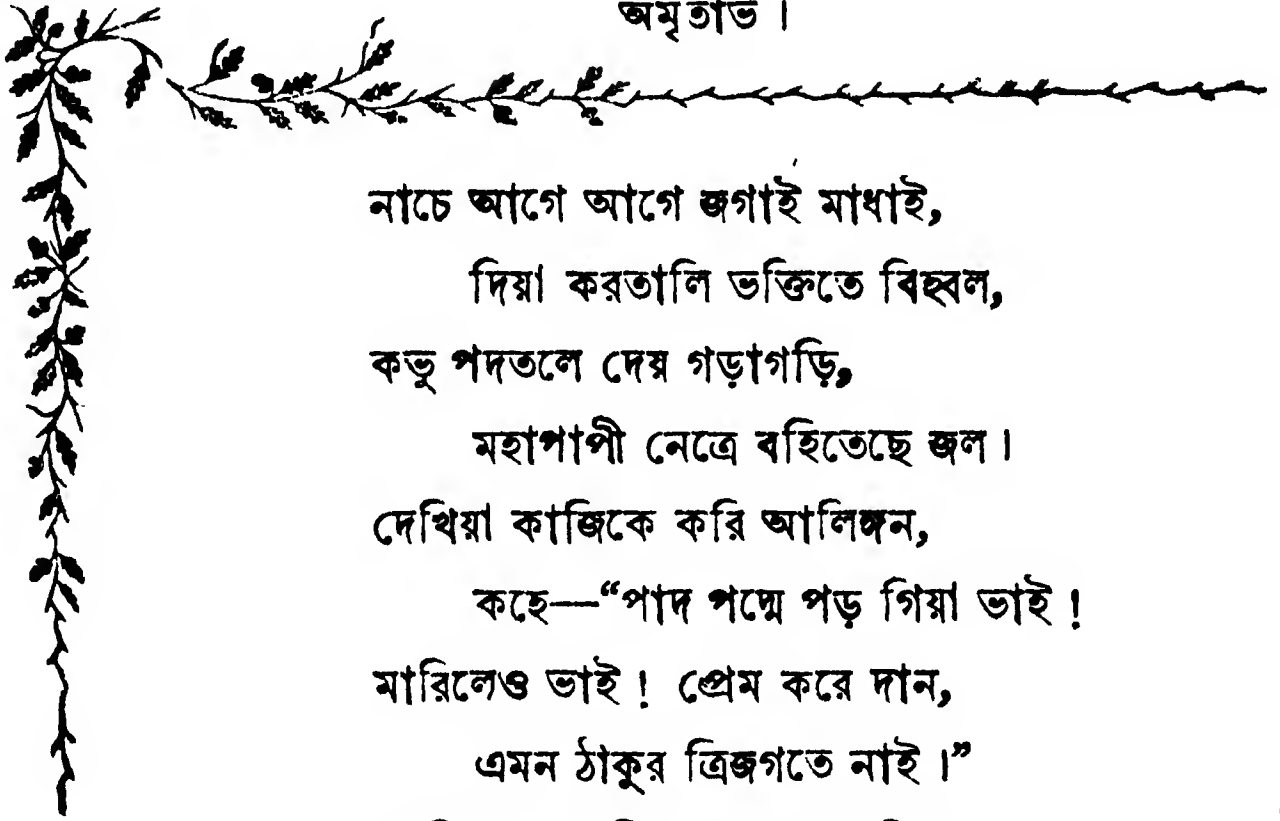 অমৃতাভ।
নাচে আগে আগে জগাই মাধাই,
দিয়া করতালি ভক্তিতে বিহ্বল,
কভু পদতলে দেয় গড়াগড়ি,
মহাপাপী নেত্রে বহিতেছে জল।
দেখিয়া কাজিকে করি আলিঙ্গন,
কহে—“পাদ পদ্মে পড় গিয়া ভাই !
মারিলেও ভাই ! প্রেম করে দান,
এমন ঠাকুর ত্রিজগতে নাই।”